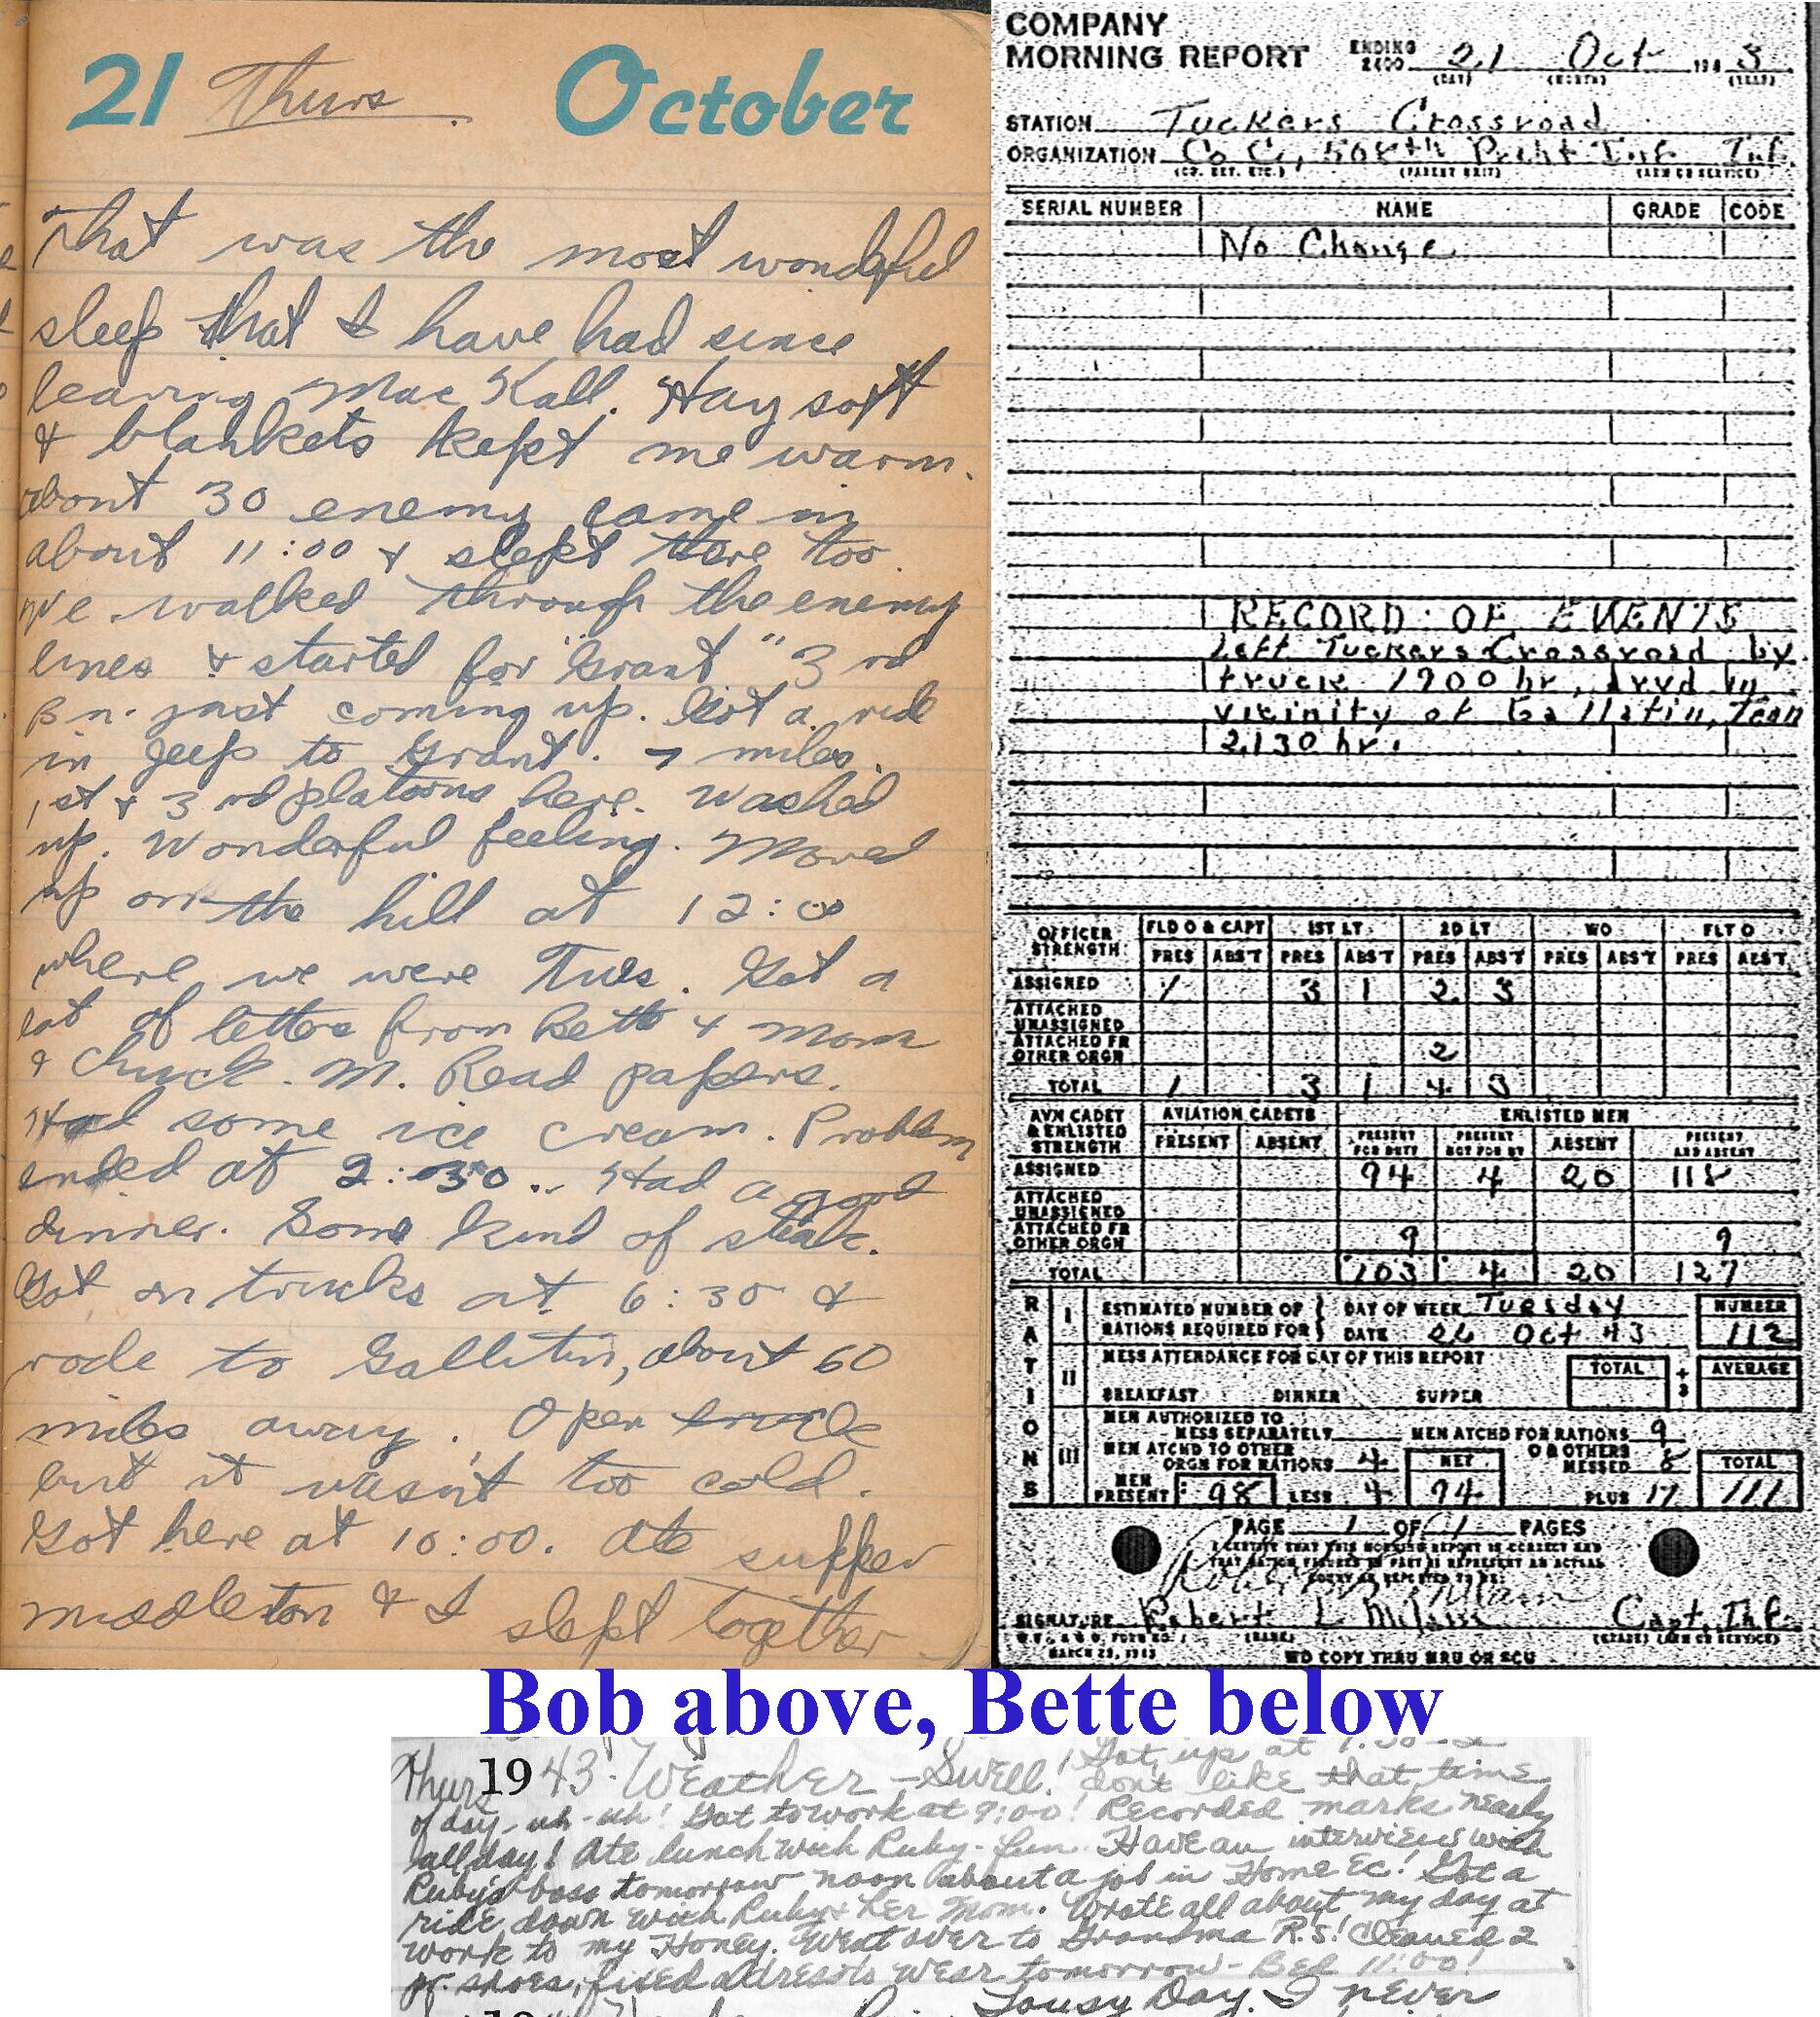 21 Thurs. October
That was the most wonderful
sleep that I have had since
leaving Mac Kall. Hay soft
& blankets kept me warm.
about 30 enemy came in
about 11:00 & slept there too.
We walked through the enemy
lines & started for "Grant" 3rd
Bn. just coming up. Got a ride
in jeep to Grant. 7 miles.
1st & 3rd platoons here. Washed
up. Wonderful feeling. Moved
up on the hill at 12:00
where we were Tues. Got a
lot of letters from Bette & mom
& Chuck. M. Read papers.
Had some ice cream. Problem
ended at 2:30. Had a good
dinner. Some kind of steak.
Got on trucks at 6:30 &
rode to Gallitin, about 60
miles away. Open truck
but it wasn't too cold.
Got here at 10:00. Ate supper
middleton & I slept together
COMPANY
MORNING REPORT ENDING 2400 21 Oct 194 3
(DAY) (MONTH) (YEAR)
STATION Tuckers Crossroad
ORGANIZATION Co C, 508th Prcht Inf Inf.
(CO. DET. ETC.) (PARENT UNIT) (ARM OR SERVICE)
SERIAL NUMBER NAME GRADE CODE
No Change
RECORD OF EVENTS
Left Tuckers Crossroad by
truck 1900 hr, arvd in
vicinity of Gallatin, Tenn
2130 hr.
OFFICER STRENGTH FLD O & CAPT 1ST LT 2D LT WO FLT O
PRES ABS'T PRES ABS'T PRES ABS'T PRES ABS'T PRES ABS'T
ASSIGNED 1 3 1 2 3
ATTACHED UNASSIGNED
ATTACHED FR OTHER ORGN 2
TOTAL 1 3 1 4 3
AVN CADET & ENLISTED STRENGTH AVIATION CADETS ENLISTED MEN
PRESENT ABSENT PRESENT FOR DUTY PRESENT NOT FOR DY ABSENT PRESENT AND ABSENT
ASSIGNED 94 4 20 118
ATTACHED UNASSIGNED
ATTACHED FR OTHER ORGN 9 9
TOTAL 103 4 20 127
RATIONS
I ESTIMATED NUMBER OF RATIONS REQUIRED FOR DAY OF WEEK Tuesday NUMBER
DATE 26 Oct 43 112
II MESS ATTENDANCE FOR DAY OF THIS REPORT TOTAL ÷ 3 AVERAGE
BREAKFAST DINNER SUPPER
III MEN AUTHORIZED TO MESS SEPARATELY MEN ATCHD FOR RATIONS 9
MEN ATCHD TO OTHER ORGN FOR RATIONS 4 NET OTHERS MESSED 8 TOTAL
MEN PRESENT 98 LESS 4 94 PLUS 17 111
PAGE 1 OF 1 PAGES
I CERTIFY THAT THIS MORNING REPORT IS CORRECT AND
SIGNATURE Robert L Milam Capt. Inf.
(NAME) (GRADE) (ARM OR SERVICE)
MARCH 25, 1943
WD COPY THRU MRU OR SCU
Bob above, Bette below
Thurs 1943 Weather - Swell! Got up at 7:30 - I
don't like that time
of day - uh-uh! Got to work at 9:00! Recorded marks nearly
all day! Ate lunch with Ruby - fun. Have an interview with
Ruby's boss tomorrow noon about a job in Home Ec! Got a
ride down with Ruby & her Mom. Wrote all about my day at
work to my Honey. Went over to Grandma R.S! Cleaned 2
pr. shoes, fixed a dress to wear tomorrow - Bed 11:00!
Lousy Day. I never